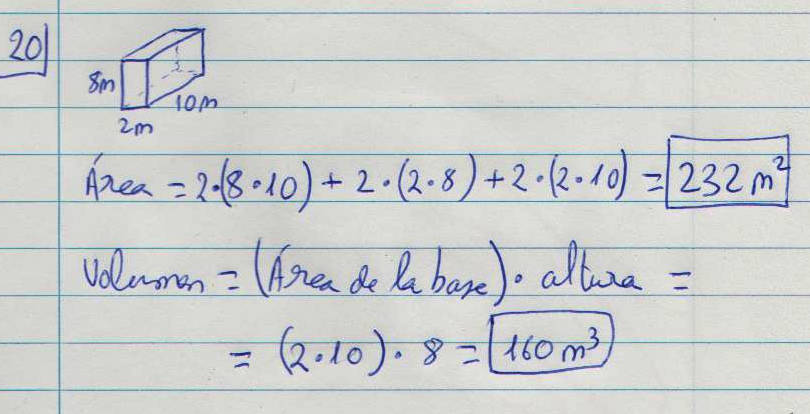 20
8m
10m
2m
Área = 2·(8·10) + 2·(2·8) + 2·(2·10) = 232 m²
Volumen = (Área de la base) · altura =
= (2·10) · 8 = 160 m³